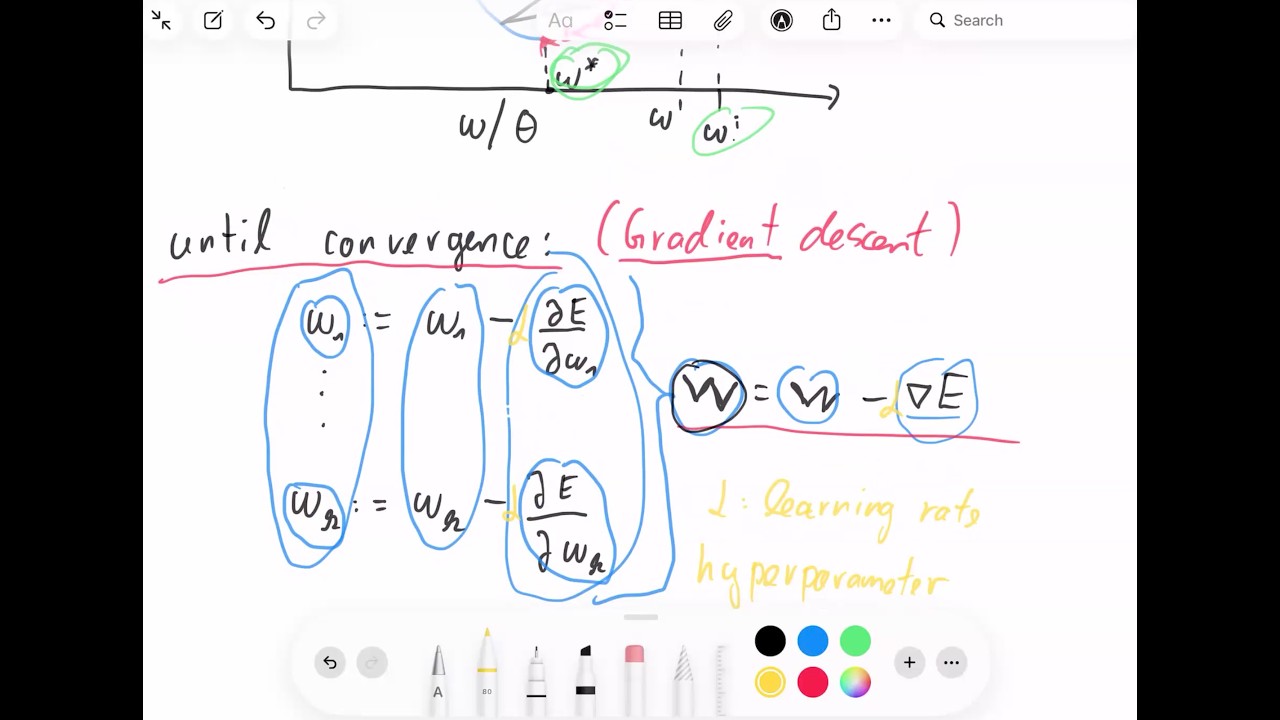 Aa
Search
w*
w/θ
w'
wⁱ
until convergence: (Gradient descent)
w₁ := w₁ - α ∂E/∂w₁
⋮
W = W - α ∇E
wₖ := wₖ - α ∂E/∂wₖ
α: learning rate
hyperparameter
A
80